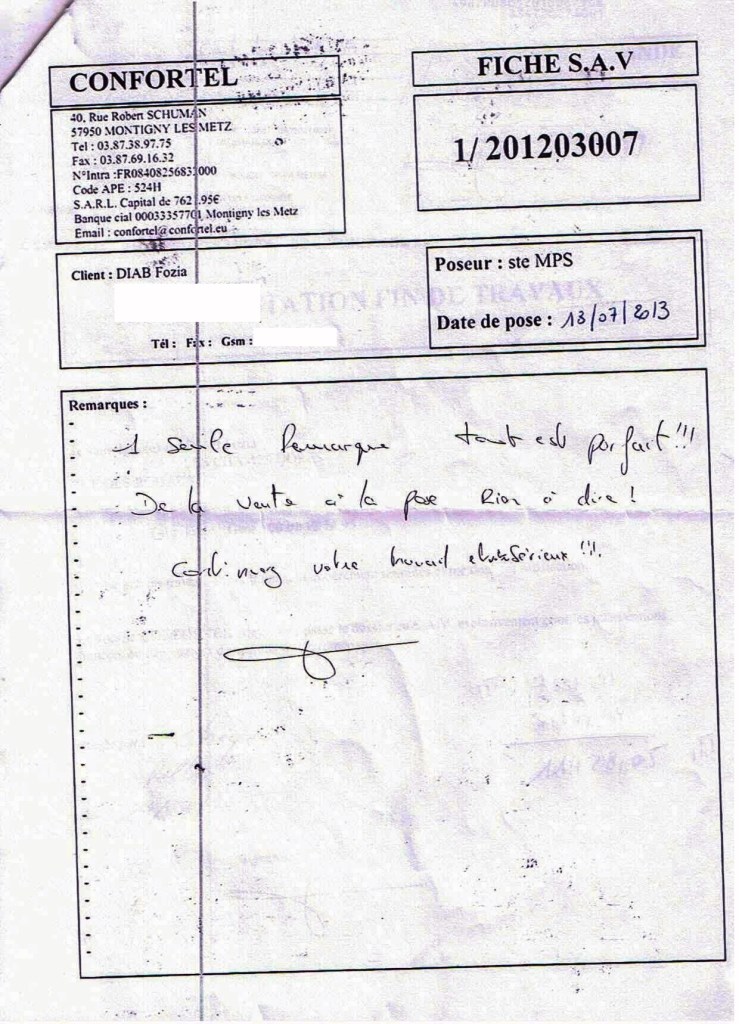 CONFORTEL
40, Rue Robert SCHUMAN
57950 MONTIGNY LES METZ
Tel : 03.87.38.97.75
Fax : 03.87.69.16.32
N°Intra :FR0840825683 000
Code APE : 524H
S.A.R.L. Capital de 762 .95€
Banque cial 00033357701 Montigny les Metz
Email : confortel@confortel.eu
FICHE S.A.V
1/ 201203007
Client : DIAB Fozia
Tél : Fax : Gsm :
Poseur : ste MPS
Date de pose : 18/07/2013
TATION FIN DE TRAVAUX
Remarques :
1 Seule Remarque tout est parfait !!!
De la vente à la pose Rien à dire !
Continuez votre travail sérieux !!!